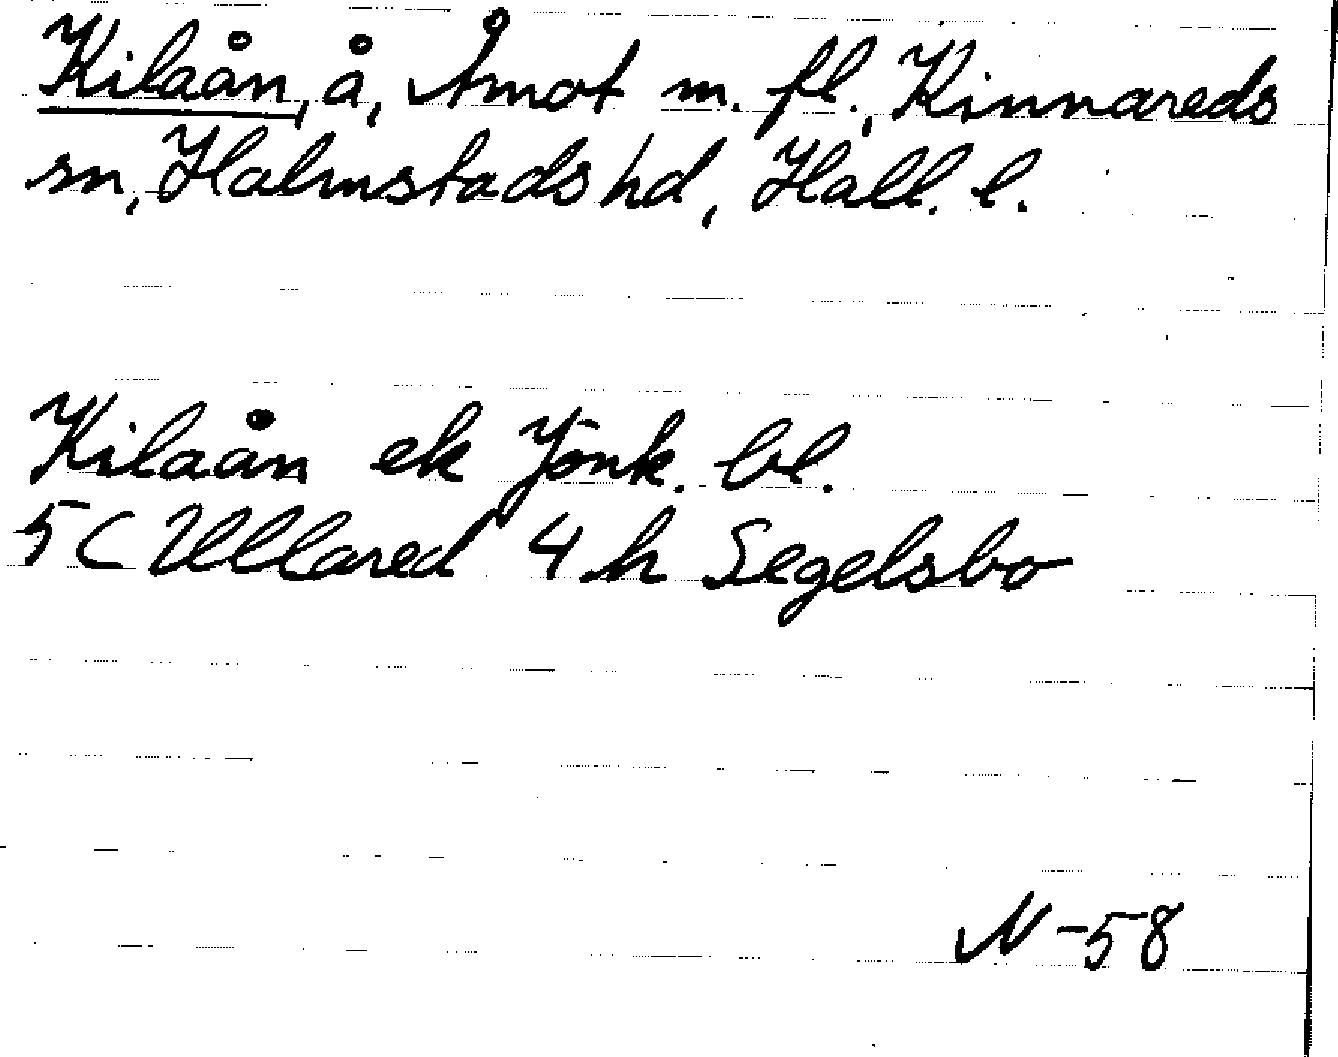 Kilaån, å, Åmot m. fl., Kinnareds
sn, Halmstads hd, Hall. l.
Kilaån ek Jönk. bl.
5 C Ullared 4 h Segelsbo
N -58